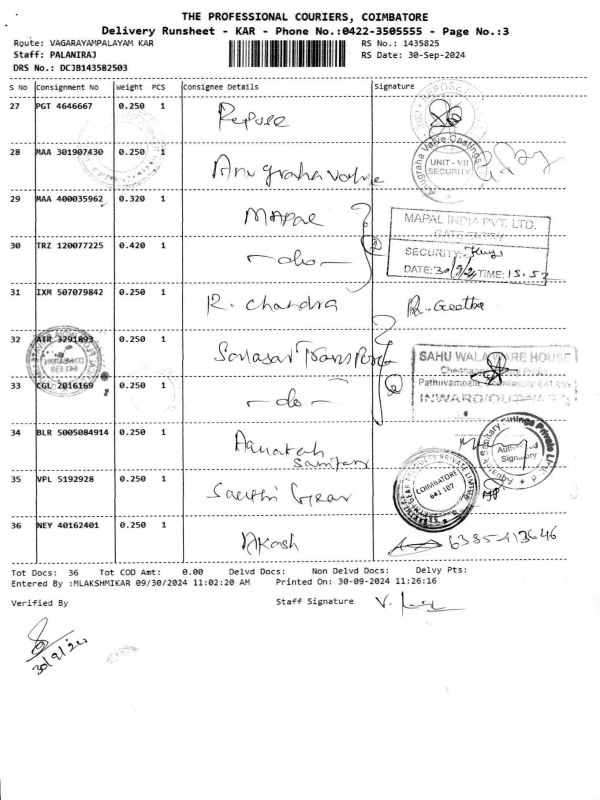 THE PROFESSIONAL COURIERS, COIMBATORE
Delivery Runsheet - KAR - Phone No.:0422-3505555 - Page No.:3
Route: VAGARAYAMPALAYAM KAR
RS No.: 1435825
Staff: PALANIRAJ
RS Date: 30-Sep-2024
DRS No.: DCJB143582503
S No Consignment No Weight PCS Consignee Details Signature
27 PGT 4646667 0.250 1 Repsee
28 MAA 301907430 0.250 1 Anugraha valve
Anugraha Valve Castings
UNIT - VII
SECURITY
29 MAA 400035962 0.320 1 MAPAL
MAPAL INDIA PVT. LTD.
GATE ENTRY
30 TRZ 120077225 0.420 1 - do -
SECURITY:
DATE: 30/9/24 TIME: 15.52
31 IXM 507079842 0.250 1 R. Chandra R. Geetha
32 ATR 3291893 0.250 1 Sarasar Transport
SAHU WALA WARE HOUSE
33 CGL 2016169 0.250 1 - do -
34 BLR 5005084914 0.250 1 Aquatah
Authorised
Signatory
35 VPL 5192928 0.250 1 Sakthi Gear
SAKTHI GEAR PRODUCTS PRIVATE LIMITED
COIMBATORE
641 107
36 NEY 40162401 0.250 1 Akash 6385413646
Tot Docs: 36 Tot COD Amt: 0.00 Delvd Docs: Non Delvd Docs: Delvy Pts:
Entered By :MLAKSHMIKAR 09/30/2024 11:02:20 AM Printed On: 30-09-2024 11:26:16
Verified By
Staff Signature
30/9/24